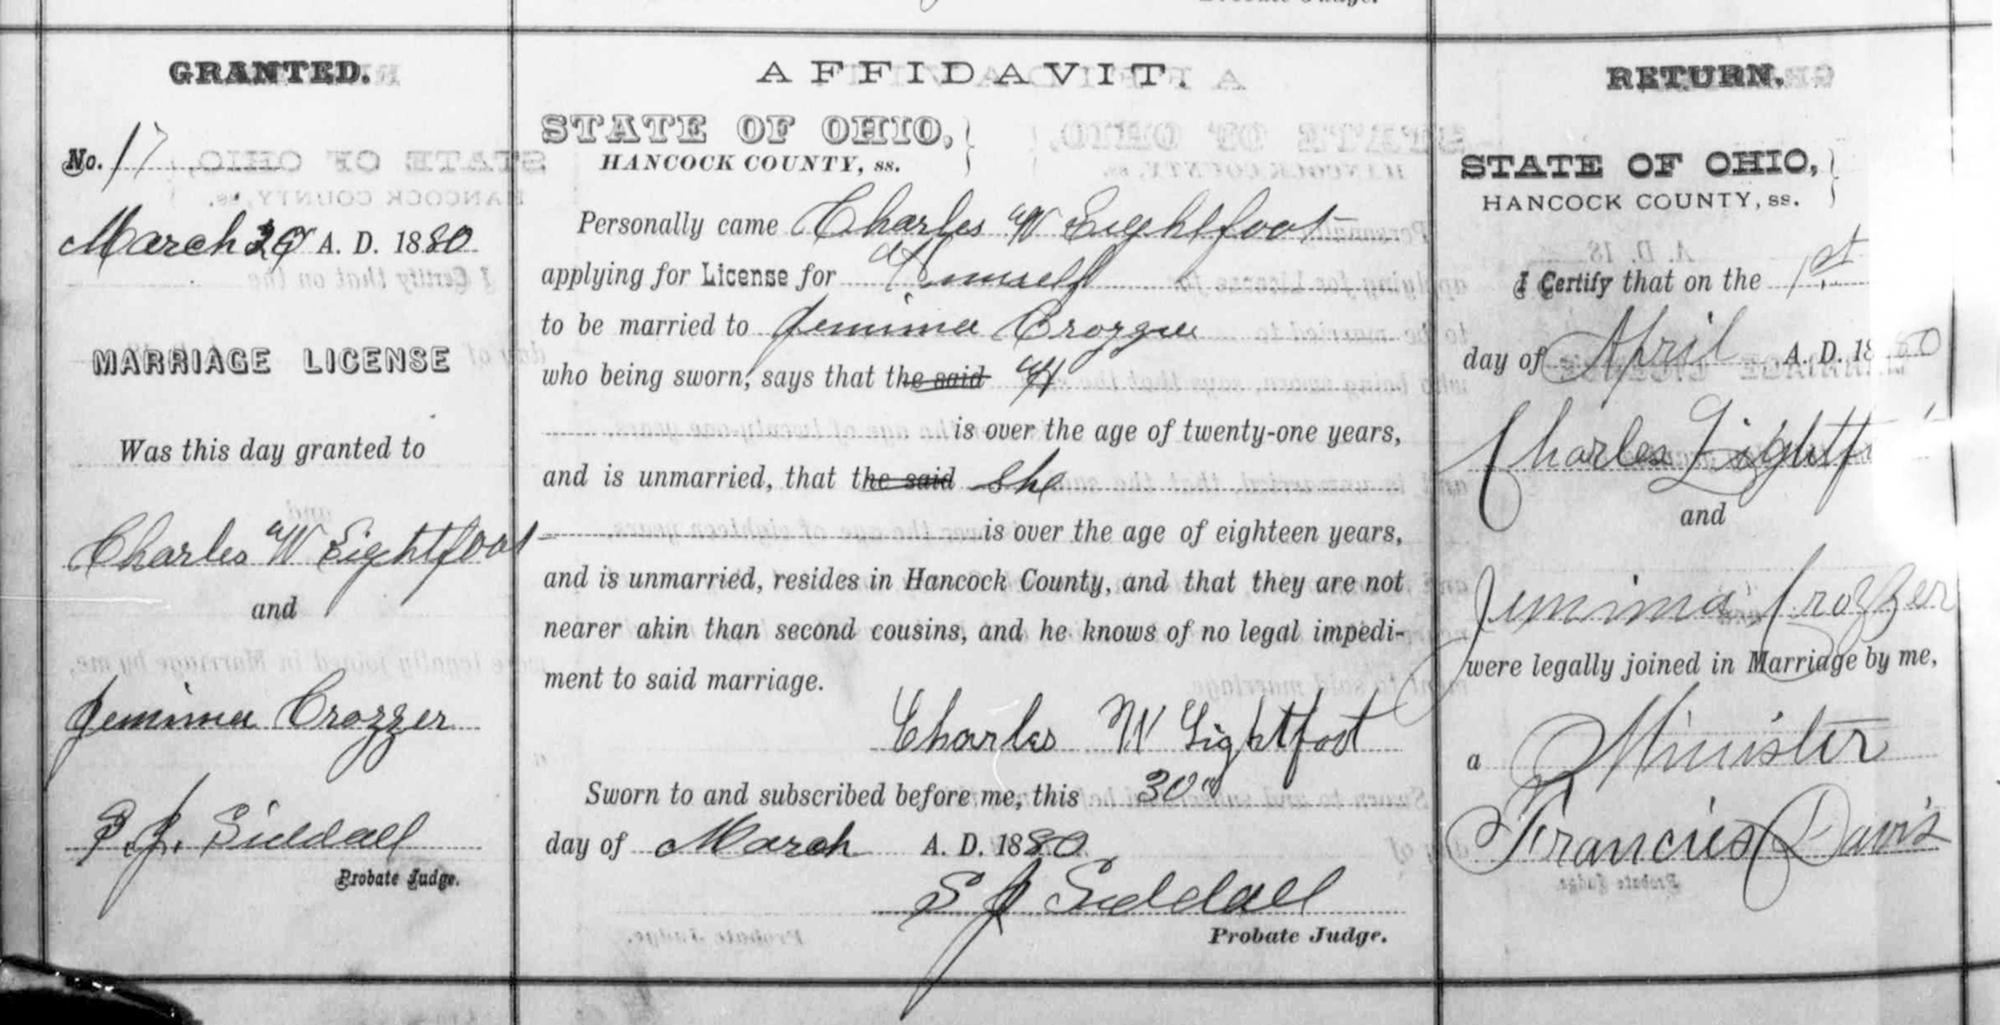 GRANTED.
No. 17
March 30 A. D. 1880
MARRIAGE LICENSE
Was this day granted to
Charles W Lightfoot
and
Jemima Crozzer
S. J. Siddall
Probate Judge.
AFFIDAVIT.
STATE OF OHIO,
HANCOCK COUNTY, ss.
Personally came Charles W Lightfoot
applying for License for himself
to be married to Jemima Crozzer
who being sworn, says that the said he
is over the age of twenty-one years,
and is unmarried, that the said she
is over the age of eighteen years,
and is unmarried, resides in Hancock County, and that they are not
nearer akin than second cousins, and he knows of no legal impedi-
ment to said marriage.
Charles W Lightfoot
Sworn to and subscribed before me, this 30
day of March A. D. 1880
S J Siddall
Probate Judge.
RETURN.
STATE OF OHIO,
HANCOCK COUNTY, ss.
I Certify that on the 1st
day of April A. D. 1880
Charles Lightf
and
Jemima Crozzer
were legally joined in Marriage by me,
a Minister
Francies Davis